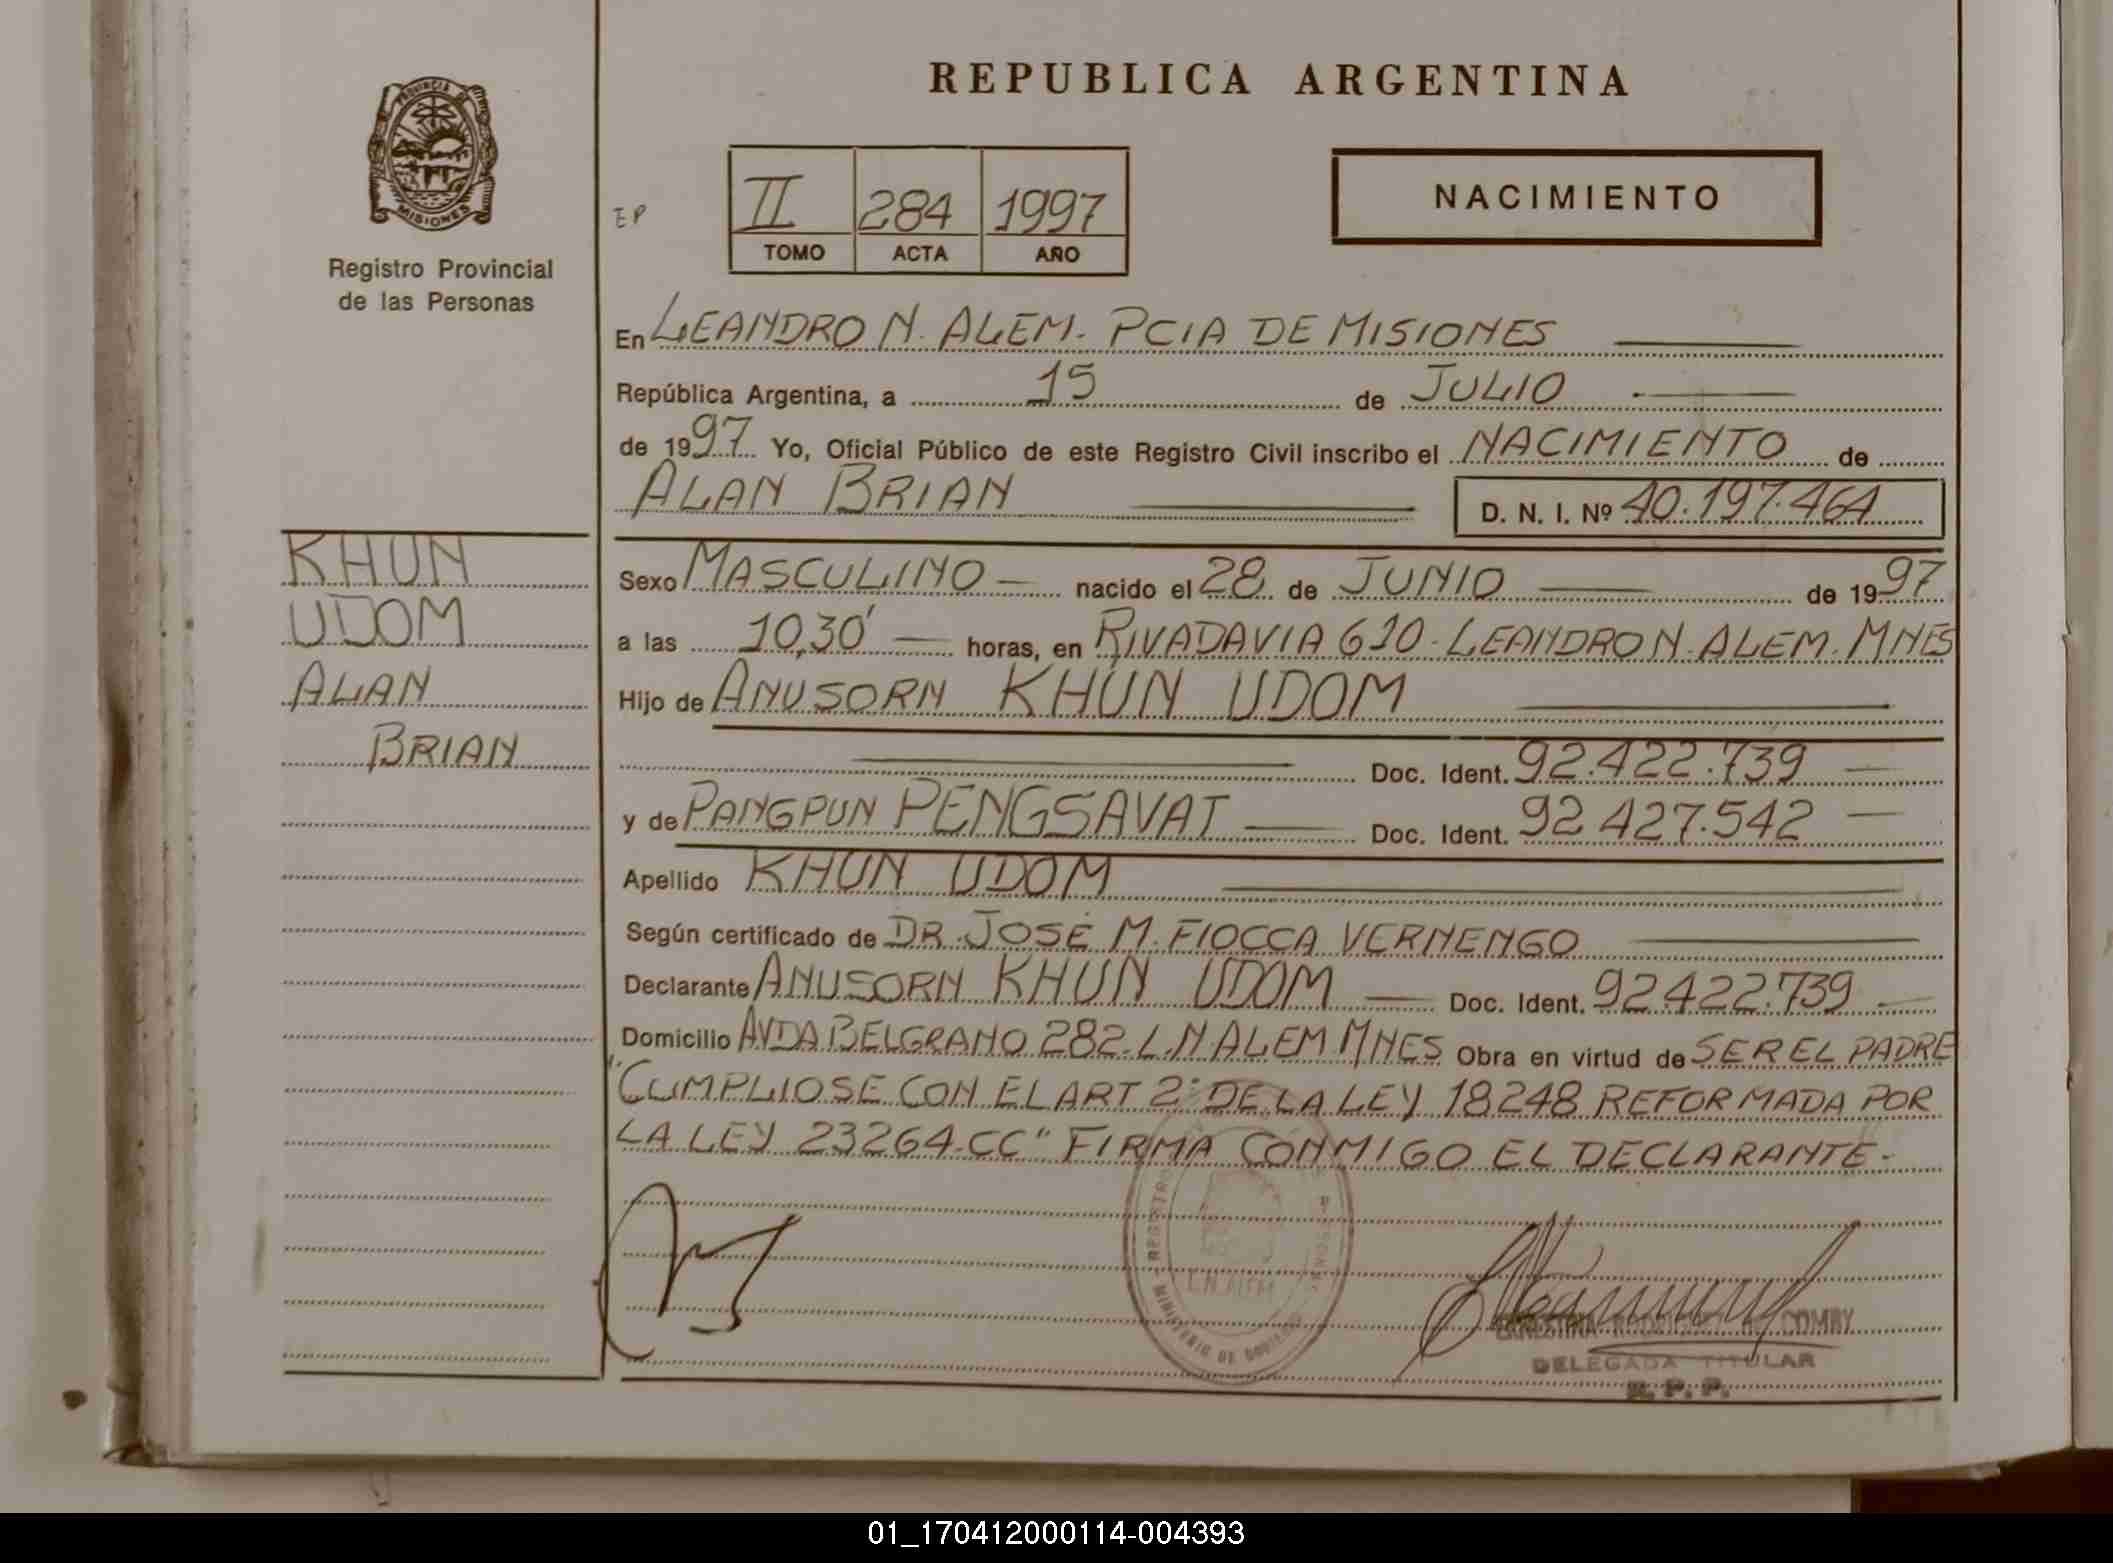 PROVINCIA DE
MISIONES
Registro Provincial
de las Personas
REPUBLICA ARGENTINA
EP
II 284 1997
TOMO ACTA AÑO
NACIMIENTO
En LEANDRO N. ALEM. PCIA DE MISIONES
República Argentina, a 15 de JULIO
de 1997 Yo, Oficial Público de este Registro Civil inscribo el NACIMIENTO de
ALAN BRIAN D. N. I. Nº 40.197.464
KHUN
UDOM
ALAN
BRIAN
Sexo MASCULINO nacido el 28 de JUNIO de 1997
a las 10,30' horas, en RIVADAVIA 610. LEANDRO N. ALEM. MNES
Hijo de ANUSORN KHUN UDOM
Doc. Ident. 92.422.739
y de PANGPUN PENGSAVAT Doc. Ident. 92.427.542
Apellido KHUN UDOM
Según certificado de DR. JOSÉ M. FIOCCA VERNENGO
Declarante ANUSORN KHUN UDOM Doc. Ident. 92422.739
Domicilio AVDA BELGRANO 282. L.N ALEM MNES Obra en virtud de SER EL PADRE
"CUMPLIOSE CON EL ART 2º DE LA LEY 18248 REFORMADA POR
LA LEY 23264.CC" FIRMA CONMIGO EL DECLARANTE.-
REGISTRO
L.N. ALEM
MINISTERIO DE GOBIERNO
RODRIGUEZ DE COMBY
DELEGADA TITULAR
R. P. P.
01_170412000114-004393